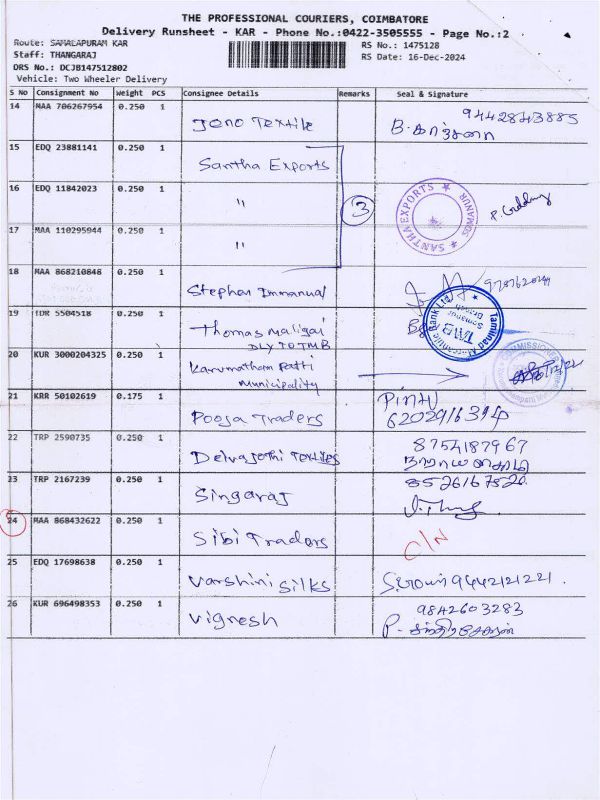 THE PROFESSIONAL COURIERS, COIMBATORE
Delivery Runsheet - KAR - Phone No.:0422-3505555 - Page No.:2
Route: SAMALAPURAM KAR
Staff: THANGARAJ
DRS No.: DCJB147512802
Vehicle: Two Wheeler Delivery
RS No.: 1475128
RS Date: 16-Dec-2024
S No Consignment No Weight PCS Consignee Details Remarks Seal & Signature
14 MAA 706267954 0.250 1 Jeno Textile 9442843885
15 EDQ 23881141 0.250 1 Santha Exports
16 EDQ 11842023 0.250 1 " 3 SANTHA EXPORTS SOMANUR
17 MAA 110295944 0.250 1 "
18 MAA 868210848 0.250 1 Stephen Immanual
19 TDR 5504518 0.250 1 Thomas Maligai
DLY TO TMB
Tamilnad Mercantile Bank Ltd. TMB Somanur Branch
20 KUR 3000204325 0.250 1 Karumatham Patti
Municipality
21 KRR 50102619 0.175 1 Pooja Traders Pintu
6202916394
22 TRP 2590735 0.250 1 Delvajothi Textiles 8754187967
23 TRP 2167239 0.250 1 Singaraj 8526167820
24 MAA 868432622 0.250 1 Sibi Traders C/N
25 EDQ 17698638 0.250 1 Varshini Silks 9442121221.
26 KUR 696498353 0.250 1 Vignesh 9842603283